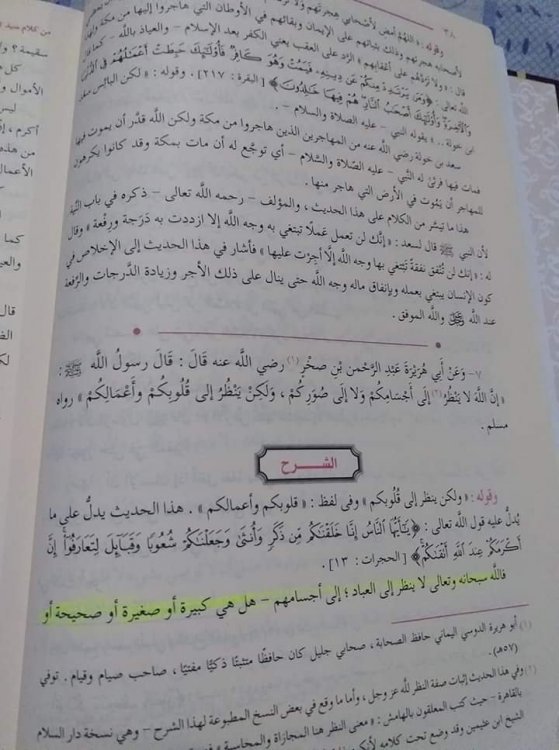 ٣٨
من كلام سيد
وقوله : « اللهم أمض لأصحابي هجرتهم ولا تردهم
لأصحابه هجرتهم وذلك بثباتهم على الإيمان وبقائهم في الأوطان التي هاجروا إليها من مكة
قال : « ولا تردهم على أعقابهم » الردّ على العقب يعني الكفر بعد الإسلام – والعياذ بالله – كما قال
الله تعالى : ﴿ وَمَن يَرْتَدِدْ مِنكُمْ عَن دِينِهِ، فَيَمُتْ وَهُوَ كَافِرٌ فَأُولَٰئِكَ حَبِطَتْ أَعْمَالُهُمْ فِي الدُّنْيَا
وَالْآخِرَةِ وَأُولَٰئِكَ أَصْحَابُ النَّارِ هُمْ فِيهَا خَالِدُونَ ﴾ [البقرة : ٢١٧] . وقوله : « لكن البائس سعد
ابن خولة .. » يقوله النبي – عليه الصلاة والسلام – .
سعد بن خولة رضي الله عنه من المهاجرين الذين هاجروا من مكة ولكن الله قدَّر أن يموت فيها
فمات فيها فرثى له النَّبي – عليه الصَّلاة والسَّلام – أي توجَّع له أن مات بمكة وقد كانوا يكرهون
للمهاجر أن يَمُوت في الأرض التي هاجر منها .
هذا ما تيسر من الكلام على هذا الحديث، والمؤلف – رحمه الله تعالى – ذكره في باب النّيَّة
لأن النبي ﷺ قال لسعد : «إنَّك لن تعمل عَملًا تبتغي به وجه الله إلا ازددت به دَرَجة ورِفْعة » وقال
له : «إنك لن تُنْفق نفقةً تَبْتغي بها وجه الله إلَّا أجِرْت عليها» فأشار في هذا الحديث إلى الإخلاص في
كون الإنسان يبتغي بعمله وبإنفاق ماله وجه الله حتى ينال على ذلك الأجر وزيادة الدَّرجات والرِّفعة
عند الله ﷻ والله الموفق .
٧- وَعَنْ أَبي هُرَيْرَةَ عَبْدِ الرَّحْمن بْنِ صخْرٍ(١) رضي الله عنه قَالَ : قَالَ رسولُ الله ﷺ :
«إنَّ اللهَ لَا يَنْظُرُ(٢) إلَى أَجْسَامِكُمْ وَلَا إلَى صُوَرِكُمْ ، وَلَكِنْ يَنْظُرُ إلى قُلُوبِكُمْ وَأَعْمَالِكُمْ » رواه
مسلم .
الشرح
وقوله : « ولكن ينظر إلى قُلُوبكم » وفى لفظ : « قلوبكم وأعمالكم » . هذا الحديث يدلُّ على ما
يُدلُّ عليه قول الله تعالى : ﴿ يَا أَيُّهَا النَّاسُ إِنَّا خَلَقْنَاكُم مِّن ذَكَرٍ وَأُنثَىٰ وَجَعَلْنَاكُمْ شُعُوبًا وَقَبَائِلَ لِتَعَارَفُوا إِنَّ
أَكْرَمَكُمْ عِندَ اللَّهِ أَتْقَاكُمْ ﴾ [الحجرات : ١٣] .
فالله سبحانه وتعالى لا ينظر إلى العباد ؛ إلى أجسامهم – هل هي كبيرة أو صغيرة أو صحيحة أو
(١) أبو هريرة الدوسي اليماني حافظ الصحابة، صحابي جليل كان حافظًا متثبتًا ذكيًّا مفتيًا ، صاحب صيام وقيام . توفي
(٥٧هـ).
وفي هذا الحديث إثبات صفة النظر لله عز وجل ، وأما ما وقع في بعض النسخ المطبوعة لهذا الشرح – وهي نسخة دار السلام
بالقاهرة – حيث كتب المعلقون بالهامش : « معنى النظر هنا المجازاة والمحاسبة »
الشيخ ابن عثيمين وقد وضع تحت كلامه
سقيمة ؟
كل
الأموال
ليس
أكرم ،
من هذه
الأعمال
كما
والعيا
قال